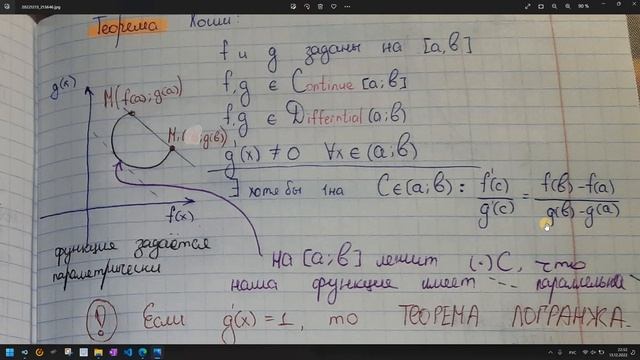 20221213_215646.jpg
90 %
Теорема Коши:
f и g заданы на [a,b]
f,g ∈ Continue [a;b]
f,g ∈ Differntial (a;b)
g'(x) ≠ 0 ∀x∈(a;b)
∃ хотя бы 1на C∈(a;b): f'(c)/g'(c) = f(b)-f(a)/g(b)-g(a)
g(x)
M(f(a);g(a))
M₁( ;g(b))
f(x)
функция задаётся
параметрически
на [a;b] лежит (·)C, что
наша функция имеет -- параллельна
! Если g'(x)=1, то ТЕОРЕМА ЛОГРАНЖА.
РУС
22:52
13.12.2022